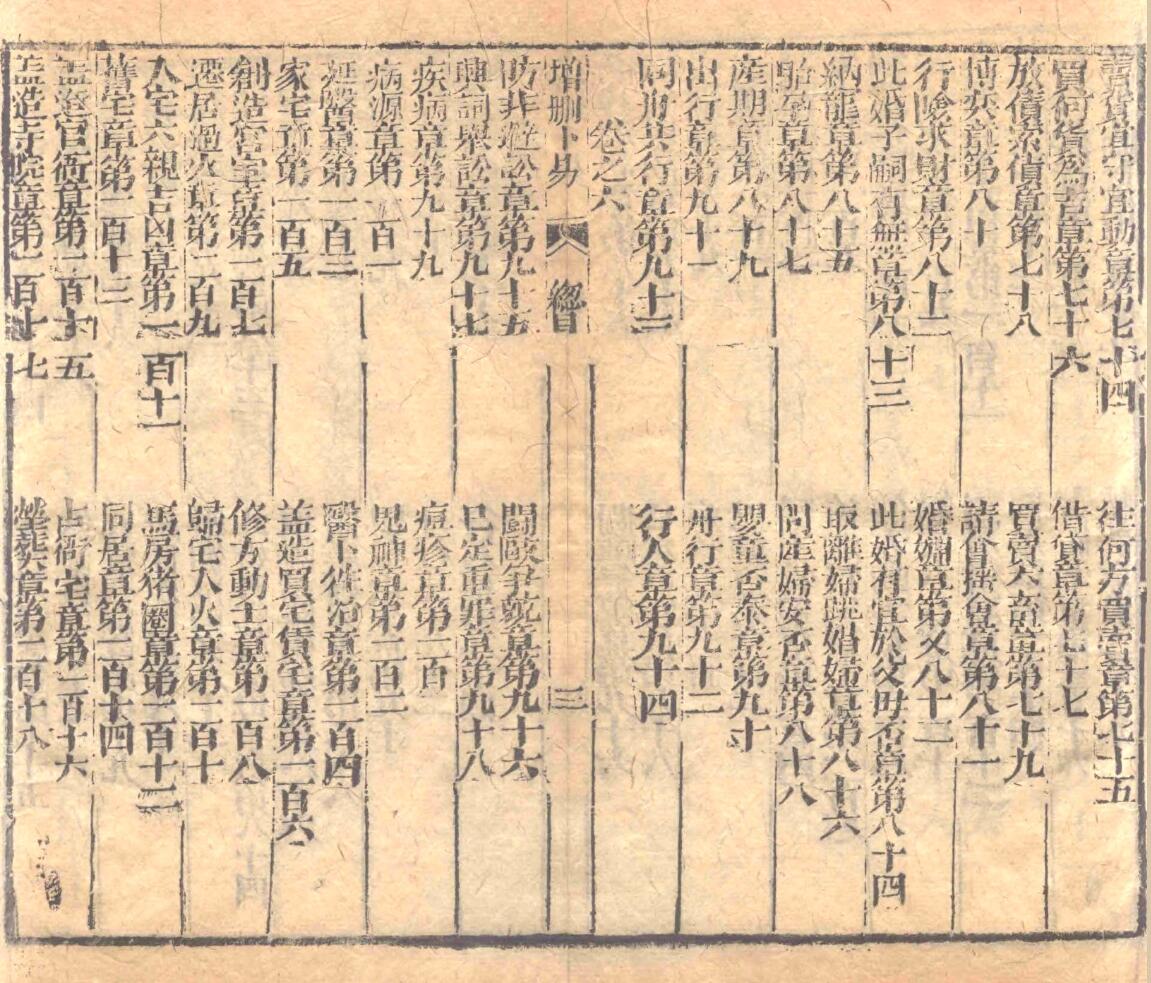 賣貨宜守宜動章第七十四
往何方賣貨章第七十五
買何貨爲吉章第七十六
借貸章第七十七
放債索債章第七十八
買賣六畜章第七十九
博奕章第八十
請會撥會章第八十一
行險求財章第八十二
婚姻章第又八十二
此婚子嗣有無章第八十三
此婚有宜於父母否章第八十四
納寵章第八十五
取離婦跳婚婦章第八十六
胎孕章第八十七
問産婦安否章第八十八
産期章第八十九
嬰童否泰章第九十
出行章第九十一
舟行章第九十二
同舟共行章第九十三
行人章第九十四
卷之六
增删卜易 總目 三
防非避訟章第九十五
鬪毆爭競章第九十六
興詞舉訟章第九十七
已定重罪章第九十八
疾病章第九十九
痘疹章第一百
病源章第一百一
鬼神章第一百二
延醫章第一百三
醫卜往治章第一百四
家宅章第一百五
盖造買宅賃宅章第一百六
創造宮室章第一百七
修方動土章第一百八
遷居過火章第一百九
歸宅入火章第一百十
入宅六親吉凶章第一百十一
馬房猪圈章第一百十二
舊宅章第一百十三
同居章第一百十四
盖造官衙章第一百十五
占衙宅章第一百十六
盖造寺院章第一百十七
塋葬章第一百十八